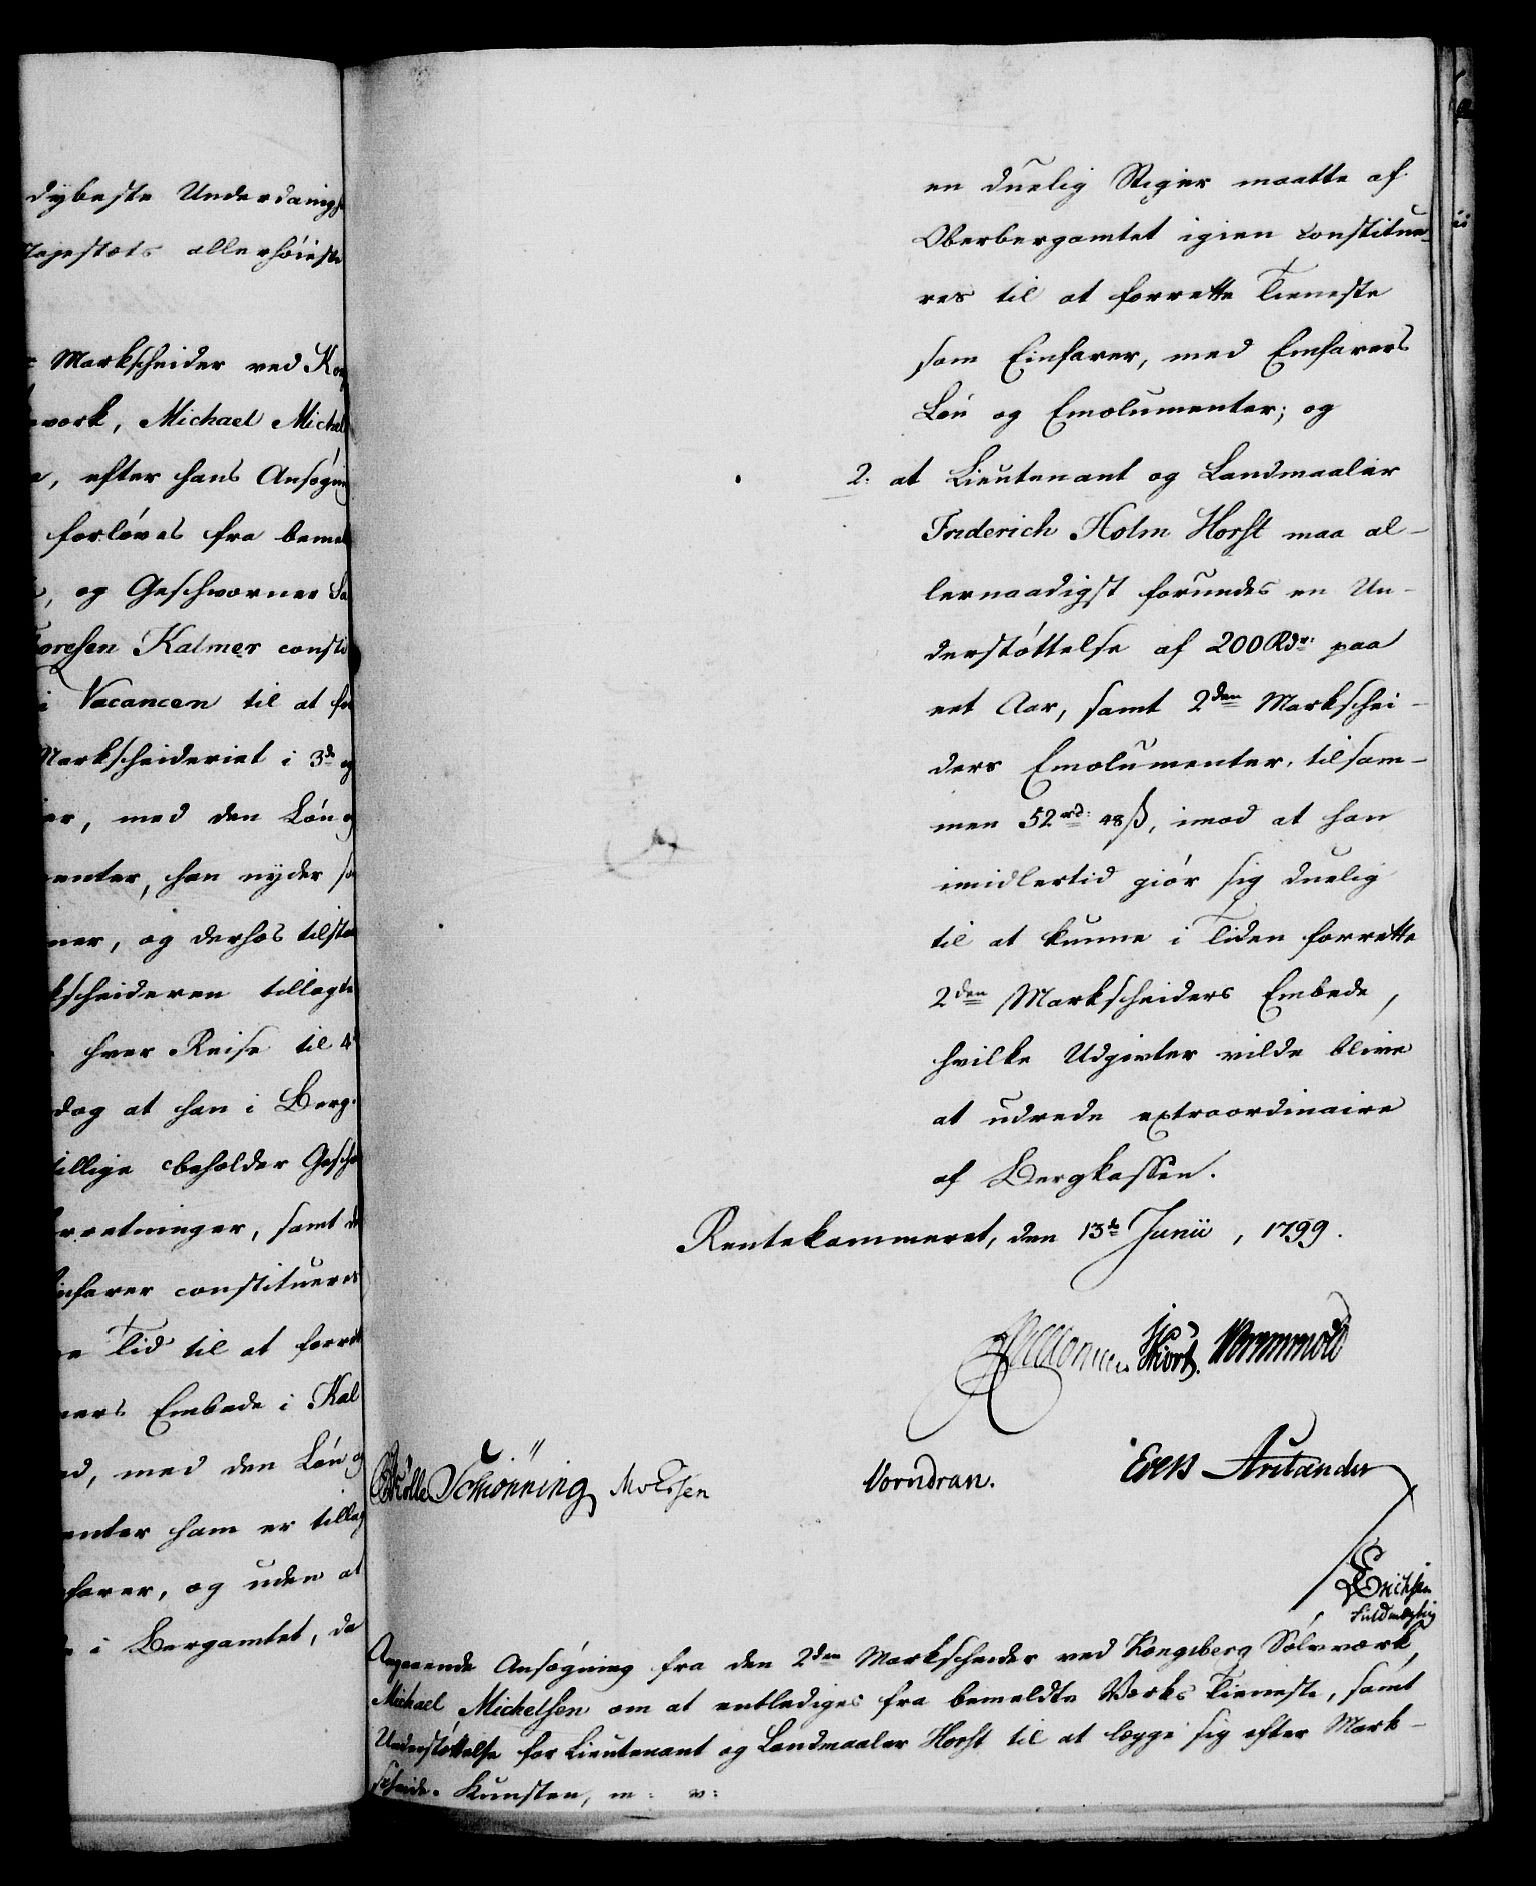 dybeste Underdanigh
Majestæts allerhöieste
Markscheider ved Kon
værk, Michael Michel
efter hans Ansøgning
forløves fra bemel
og Geschworner
Toresen Kalmer consti
i Vacancen til at for
Markscheideriet i 3de og
er, med den Løn og
menter, han nyder so
ner, og derhos tilstaa
kscheideren tillagde
hver Reise til 4
dog at han i Berg-
tillige beholder Gesch
rretninger, samt
infarer constitueres
Tid til at forret
ners Embede i Kal
med den Løn og
menter ham er tillag
farer, og uden at
i Bergamtet, da
en duelig Stiger maatte af
Oberbergamtet igien constitue-
res til at forrette Tieneste
som Einfarer, med Einfarers
Løn og Emolumenter; og
2. at Lieutenant og Landmaaler
Friderich Holm Horst maa al-
lernaadigst forundes en Un-
derstøttelse af 200 Rdr: paa
eet Aar, samt 2den Markschei-
ders Emolumenter, tilsam-
men 52 rd: 48 ß, imod at han
imidlertid giör sig duelig
til at kunne i Tiden forrette
2den Markscheiders Embede,
hvilke Udgivter vilde blive
at udrede extraordinaire
af Bergkassen.
Rentekammeret, den 13de Junii, 1799.
Hiort. Wormskiold
Schønning Moessen Vorndran. Evers Arctander
Erichsen
Fuldmægtig
Angaaende Ansøgning fra den 2den Markscheider ved Kongsberg Sølvværk,
Michael Michelsen om at entlediges fra bemeldte Værks Tieneste, samt
Understøttelse for Lieutenant og Landmaaler Horst til at lægge sig efter Mark-
scheide-Kunsten, m: v: